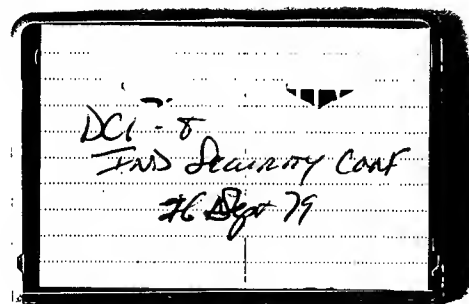 DCI - 8
IND Security Conf
26 Sept 79